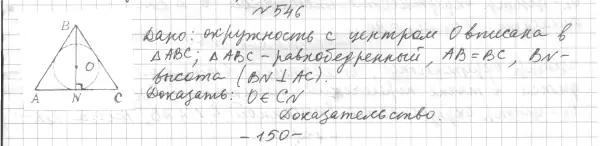 №546
B
O
A N C
Дано: окружность с центром O вписана в
△ABC; △ABC - равнобедренный, AB=BC, BN-
высота (BN⊥AC).
Доказать: O∈CN
Доказательство.
-150-